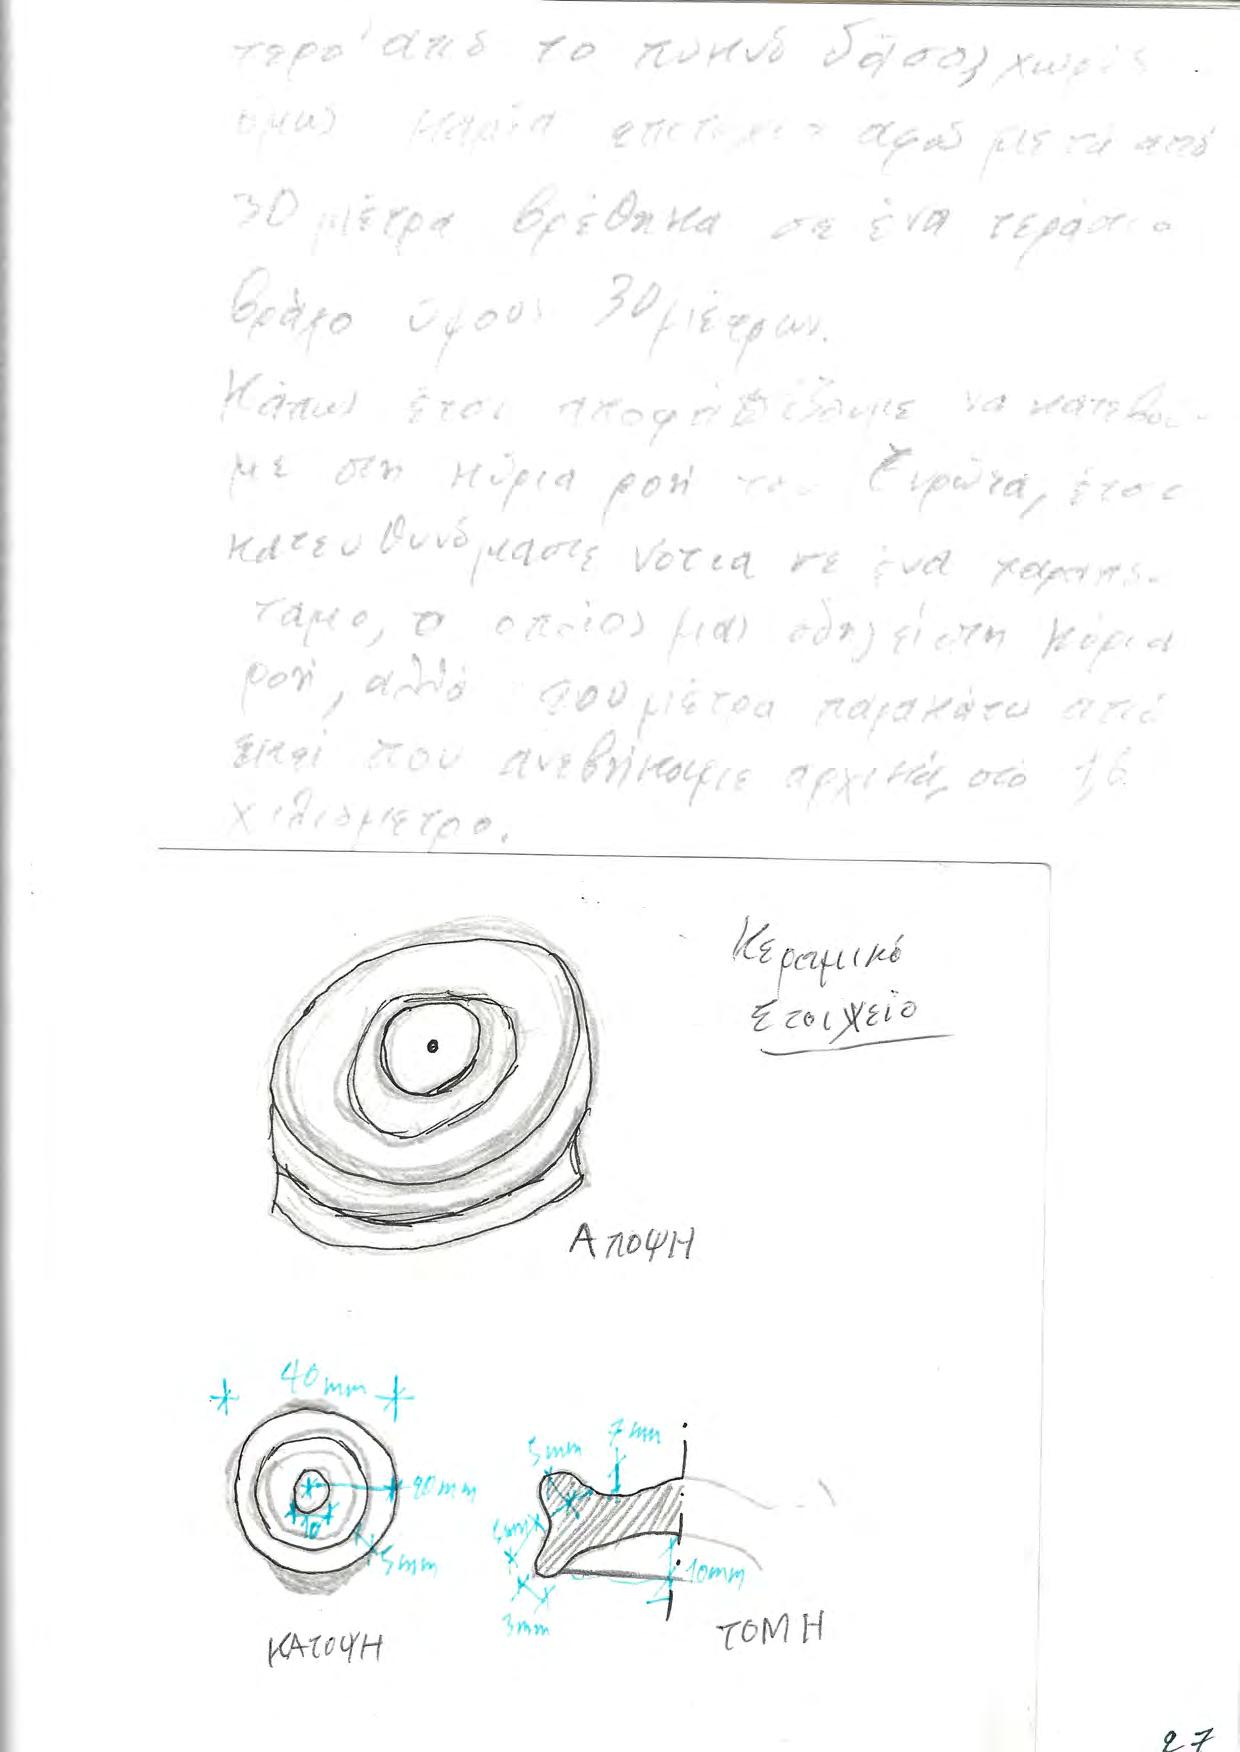 τερο' από το πυκνό δάσος χωρίς
όμως καμία επιτυχία αφού μετά από
30 μέτρα βρέθηκα σε ένα τεράστιο
βράχο ύψους 30 μέτρων.
Κάπως έτσι να κατεβού-
με στη κύρια ροή του Ευρώτα, έτσι
κατευθυνόμαστε νότια σε ένα παραπό-
ταμο, ο οποίος μας οδηγεί στη κύρια
ροή, αλλά μέτρα παρακάτω από
εκεί που ανεβήκαμε αρχικά, στο 1,6
χιλιόμετρο.
Κεραμικό
Στοιχείο
ΑΠΟΨΗ
40mm
20mm
10
5mm
ΚΑΤΟΨΗ
7mm
5mm
5mm
10mm
3mm
ΤΟΜΗ
27